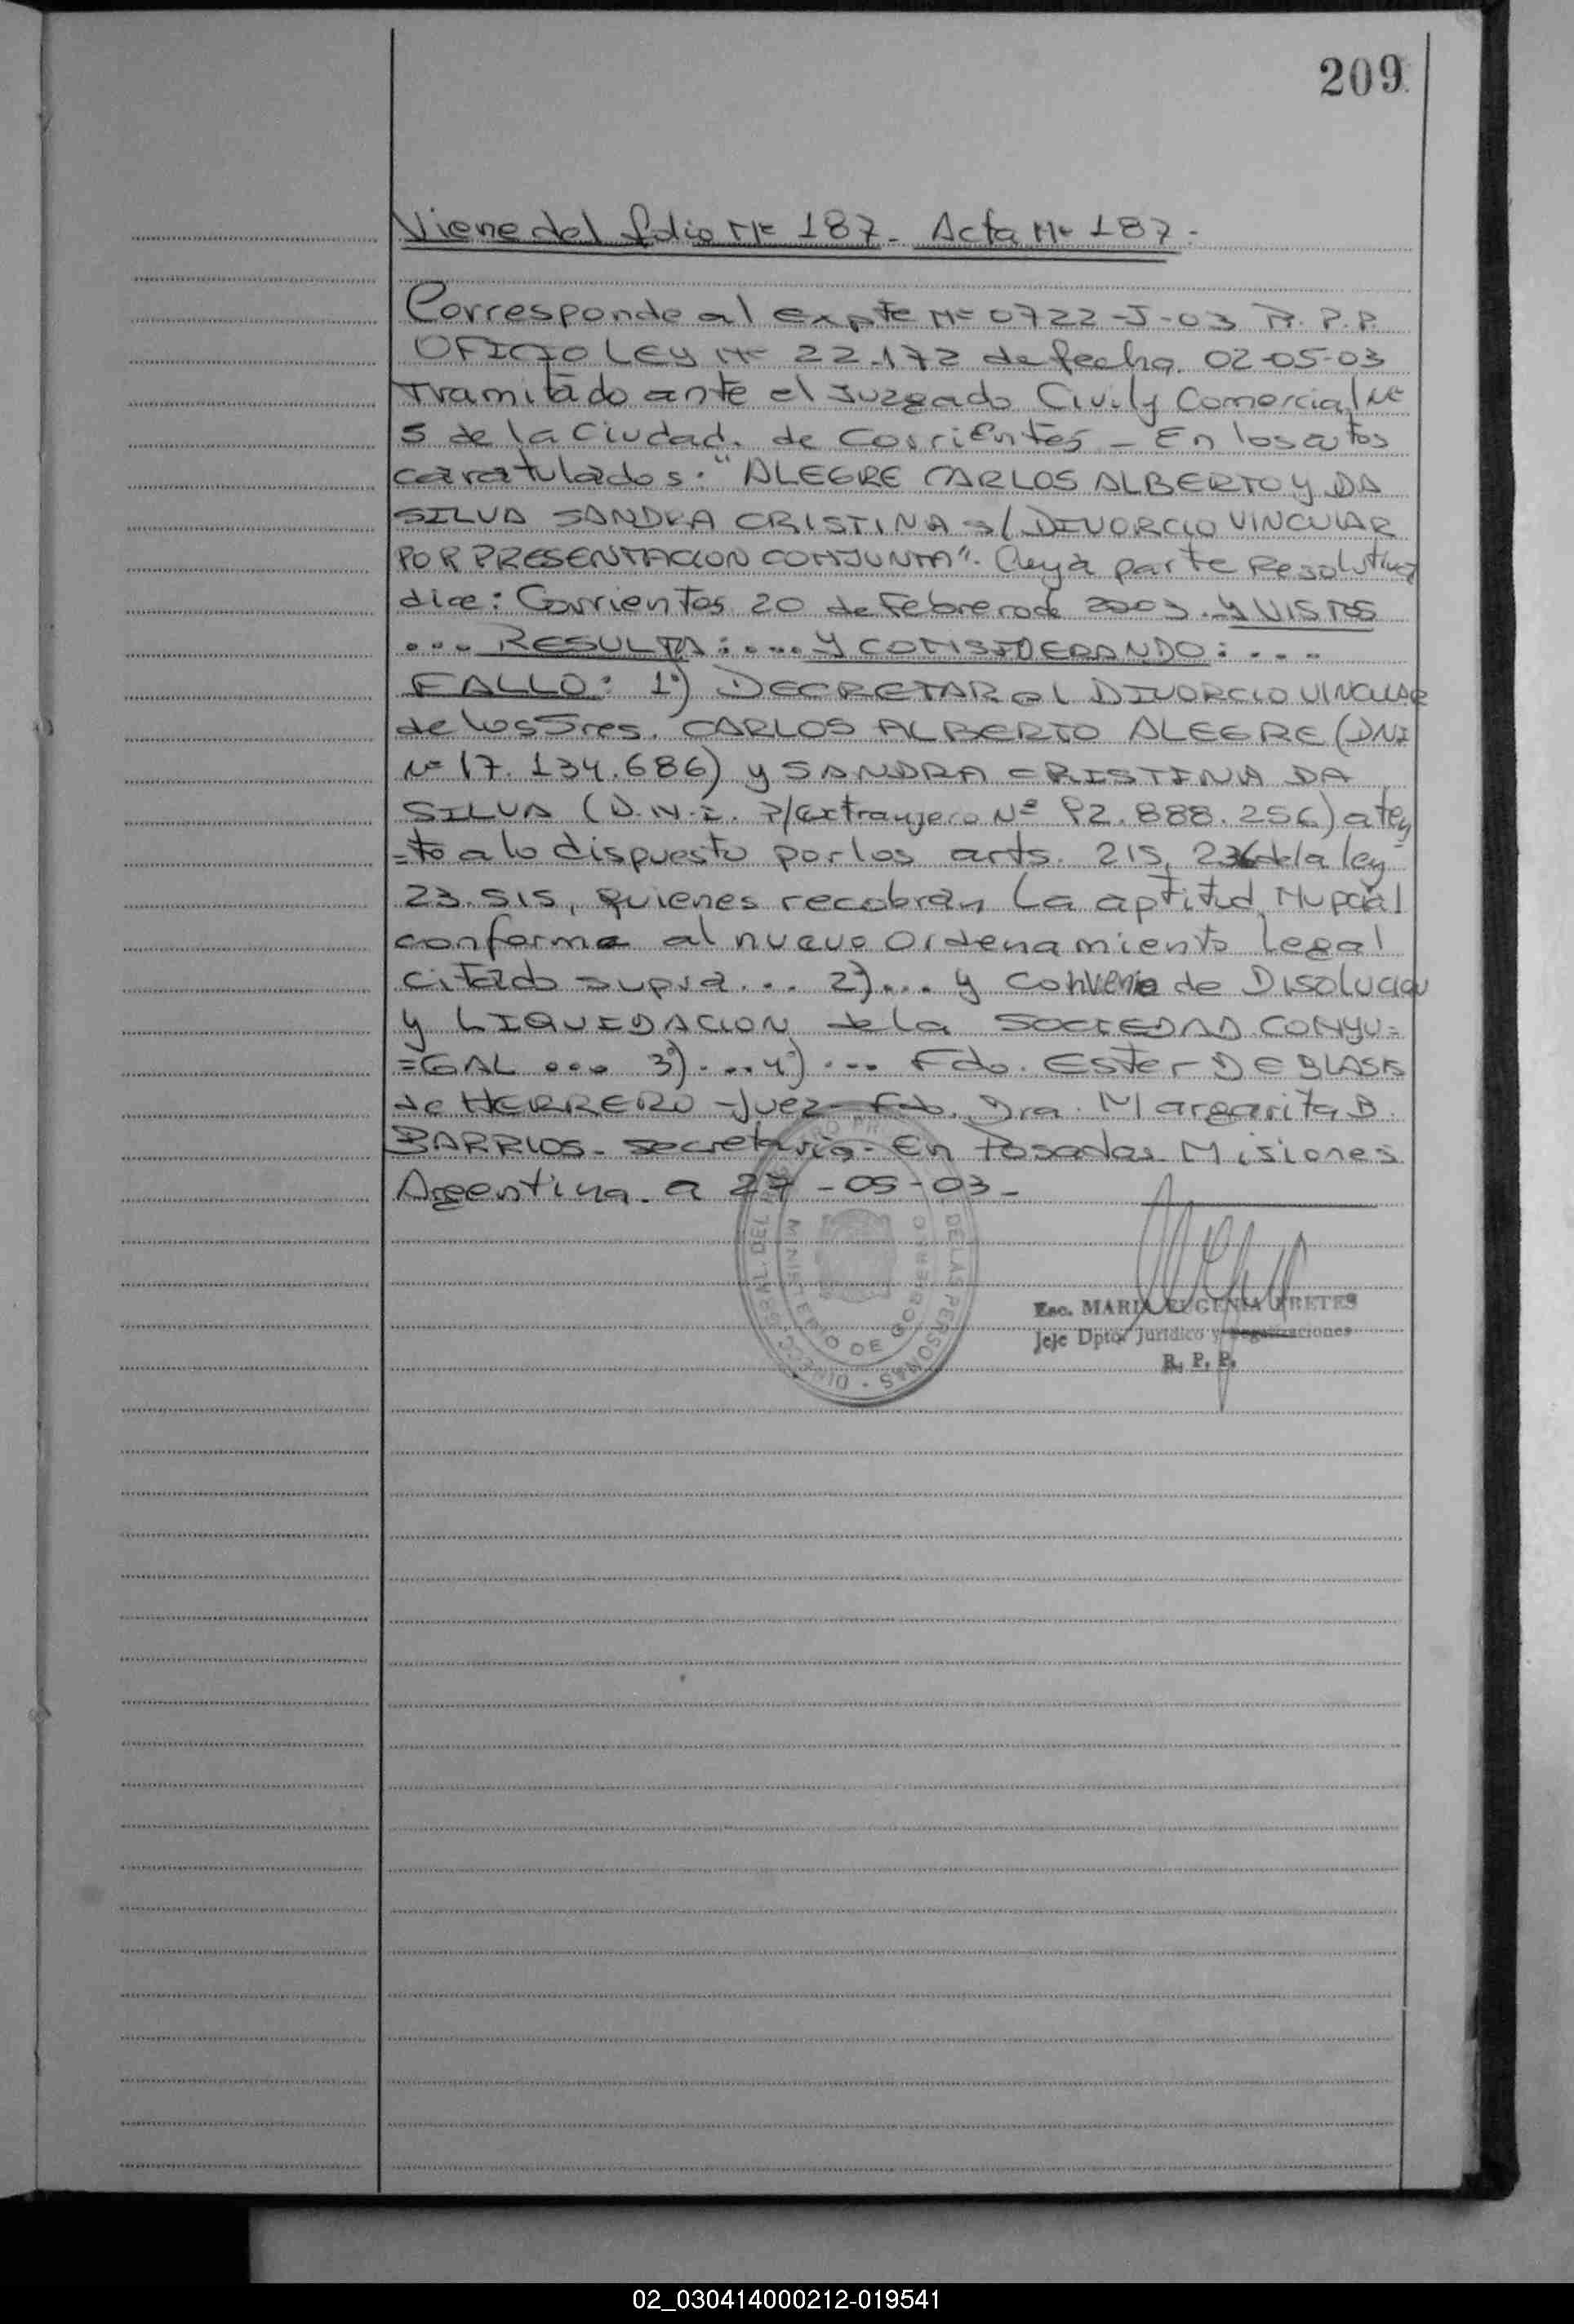 209
Viene del folio Nº 187 - Acta Nº 187 -
Corresponde al Expte Nº 0722-J-03 R.P.P.
OFICIO LEY Nº 22.172 de fecha 02-05-03
Tramitado ante el Juzgado Civil y Comercial Nº
5 de la Ciudad de Corrientes - En los autos
caratulados: "ALEGRE CARLOS ALBERTO Y DA
SILVA SANDRA CRISTINA s/ DIVORCIO VINCULAR
POR PRESENTACION CONJUNTA". Cuya parte Resolutiva
dice: Corrientes 20 de Febrero de 2003. Y VISTOS
.... RESULTA: .... Y CONSIDERANDO: ...
FALLO: 1º) DECRETAR el DIVORCIO VINCULAR
de los Sres. CARLOS ALBERTO ALEGRE (DNI
Nº 17.134.686) y SANDRA CRISTINA DA
SILVA (D.N.I. P/Extranjero Nº 92.888.256) aten
=to a lo dispuesto por los arts. 215, 236 de la ley
23.515, quienes recobrán la aptitud Nupcial
conforme al nuevo Ordenamiento Legal
citado supra... 2)... y Convenio de Disolucion
y LIQUIDACION de la SOCIEDAD CONYU=
=GAL ... 3º) ... 4º) ... Fdo. Ester DE BLASIS
de HERRERO - Juez - Fdo. Dra. Margarita B.
BARRIOS - Secretaria - En Posadas Misiones
Argentina a 27 - 05 - 03 -
MINISTERIO DE GOBIERNO
DE LAS PERSONAS
Esc. MARIA EUGENIA FRETES
Jefe Dpto. Jurídico y
R. P. P.
02_030414000212-019541